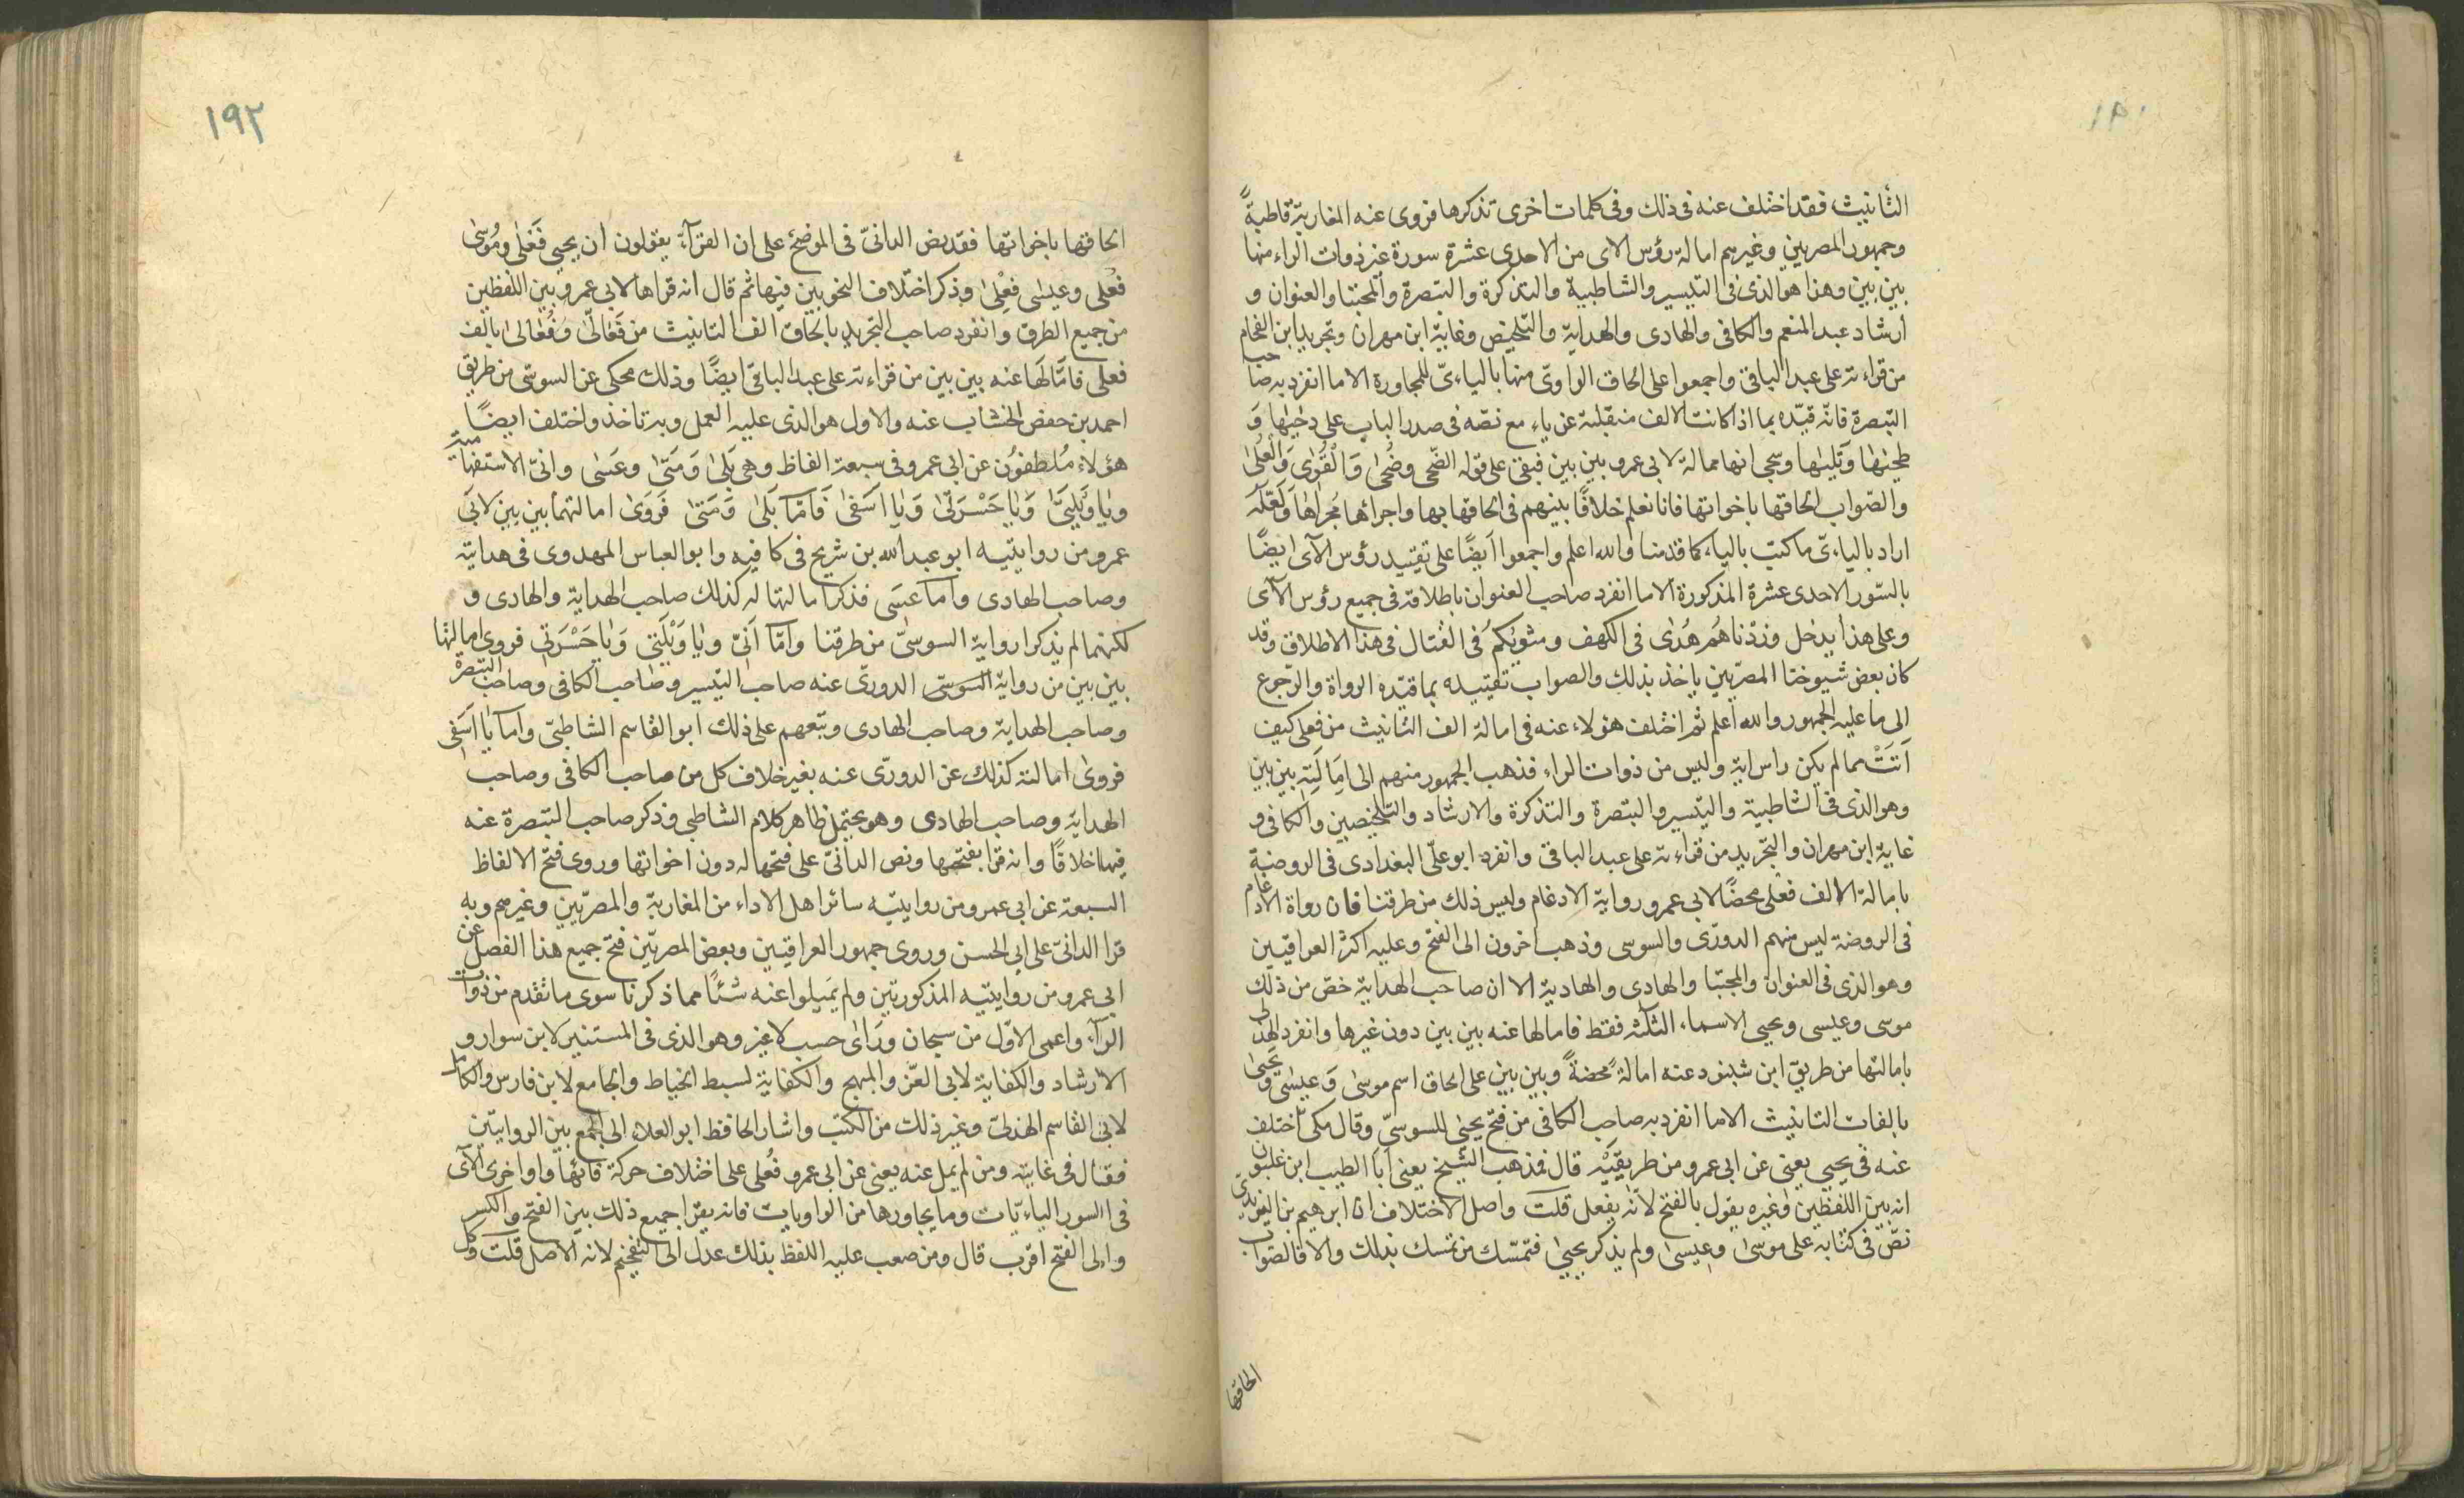 التأنيث فقد اختلف عنه فى ذلك وفى كلمات اخرى تذكرها فروى عنه المغاربة قاطبةً
وجمهور المصريين وغيرهم امالة رؤس الاى من الاحدى عشرة سورة غير ذوات الراء منها
بين بين وهذا هو الذى فى التيسير والشاطبية والتذكرة والتبصرة والمجتبا والعنوان و
ارشاد عبد المنعم والكافى والهادى والهداية والتلخيص وغاية ابن مهران وتجريد ابن الفحام
من قراءته على عبد الباقى واجمعوا على الحاق الواوىّ منها باليائىّ للمجاورة الا ما انفرد به صاحب
التبصرة فانّه قيّده بما اذا كانت الالف منقلبة عن ياء مع نصّه فى صدر الباب على دحٰيها وَ
طحيٰها وَتَليٰها وسجى انها ممالة لابى عمرو بين بين فبقى على قوله الضّحى وضُحىٰ وَالْقُوىٰ وَالْعُلىٰ
والصّواب الحاقها باخواتها فانا نعلم خلافًا بينهم فى الحاقها بها واجرائها مُجراها وَلَعَلَّهُ
اراد باليائىّ ما كتب بالياء كما قدمنا والله اعلم واجمعوا اَيضًا على تقييد رؤس الآى ايضًا
بالسّور الاحدى عشرة المذكورة الا ما انفرد صاحب العنوان باطلاقه فى جميع رؤس الآى
وعلى هذا يدخل وزدْناهُم هُدًى فى الكهف ومثويٰكُم فى القتال فى هذا الاطلاق وقد
كان بعض شيوخنا المصريّين ياخذ بذلك والصواب تقييده بما قيّده الرواة والرّجوع
الى ما عليه الجمهور والله اعلم ثم اختلف هؤلاء عنه فى امالة الف التانيث من فعلى كيف
اَتَتْ مما لم يكن راس اية وليس من ذوات الراء فذهب الجمهور منهم الى اِمَالَتِهِ بين بين
وهو الذى فى الشاطبية والتيسير والتبصرة والتذكرة والارشاد والتلخيصين والكافى و
غاية ابن مهران والتجريد من قراءته على عبد الباقى وانفرد ابو علىّ البغدادى فى الروضة
بامالة الالف فعلى محضًا لابى عمرو رواية الادغام وليس ذلك من طرقنا فان رواة الادغام
فى الروضة ليس منهم الدورى والسوسى وذهب اخرون الى الفتح وعليه اكثر العراقيين
وهو الذى فى العنوان والمجتبا والهادى والهادية الا ان صاحب الهداية خصّ من ذلك
موسى وعيسى ويحيى الاسماء الثلٰثه فقط فامالها عنه بين بين دون غيرها وانفرد الهذلى
بامالتها من طريق ابن شنبوذ عنه امالةً محضةً وبين بين على الحاق اسم موسىٰ وَعيسٰى ويَحيىٰ
بالفات التانيث الا ما انفرد به صاحب الكافى من فتح يحيىٰ للسوسىّ وقال مكى اختلف
عنه فى يحيى يعنى عن ابى عمرو من طريقَيْه قال فذهب الشّيخ يعنى ابا الطيب ابن غلبون
انه بين اللفظين وغيره يقول بالفتح لانّه يفعل قلت واصل الاختلاف ان ابرهيم بن اليزيدىّ
نصّ فى كتابه على موسىٰ وعيسىٰ ولم يذكر يحيىٰ فتمسّك من تمسك بذلك والا فالصّواب
الحاقها
١٩٢
الحاقها باخواتها فقد نص الدانىّ فى الموضح على ان القرّآء يقولون ان يحيى فَعْلى ومُوسىٰ
فُعْلٰى وعيسٰى فِعْلىٰ وذكر اختلاف النحويين فيها ثم قال انه قراها لابى عمرو بين اللفظين
من جميع الطرق وانفرد صاحب التجريد بالحاق الف التانيث من فَعَالىٰ وَفُعَالىٰ بالف
فعلى فامَالَها عنه بين بين من قراءته على عبد الباقى ايضًا وذلك محكى عن السوسى من طريق
احمد بن حفص الخشاب عنه والاول هو الذى عليه العمل وبه ناخذ واختلف ايضًا
هؤلاء مُلطفوُن عن ابى عمرو فى سبعة الفاظ وهى بَلىٰ وَمَتىٰ وعَسٰى وانّى الاستفهامية
ويٰا وَيْلَتىٰ وَيٰا حَسْرَتىٰ وَيٰا اسَفىٰ فَامّا بَلىٰ وَمَتىٰ فَروَىٰ امالتهما بين بين لابى
عمرو من روايتيه ابو عبد الله بن شريح فى كافيه وابو العباس المهدوى فى هدايته
وصاحب الهادى واما عَسٰى فذكر امالتها له كذلك صاحب الهداية والهادى و
لكنهما لم يذكرا رواية السوسىّ من طرقنا وامّا اَنّىٰ ويٰا وَيْلَتىٰ وَيٰا حَسْرَتىٰ فروى امالتها
بين بين من رواية السوسىّ الدورىّ عنه صاحب التيسير وصاحب الكافى وصاحب التبصرة
وصاحب الهداية وصاحب الهادى وتبعهم على ذلك ابو القاسم الشاطبىّ واما يٰا اَسَفى
فروىٰ امالته كذلك عن الدورّى عنه بغير خلاف كل من صاحب الكافى وصاحب
الهداية وصاحب الهادى وهو يحتمل ظاهر كلام الشاطبى وذكر صاحب التبصرة عنه
فيها خلافًا وانه قرا بفتحها ونص الدانىّ على فتحها له دون اخواتها وروى فتح الالفاظ
السبعة عن ابى عمرو من روايتيه سائر اهل الاداء من المغاربة والمصرّيين وغيرهم وبه
قرا الدانىّ على ابى الحسن وروى جمهور العراقيين وبعض المصريّين فتح جميع هذا الفصل عن
ابى عمرو من روايتيه المذكورتين ولم يَميلوا عنه شئًا مما ذكرنا سوى ما تقدم من ذوات
الرآء واعمى الاوّل من سبحان ورَاٰى حسب لا غير وهو الذى فى المستنير لابن سوار و
الارشاد والكفاية لابى العزّ والمبهج والكفاية لسبط الخياط والجامع لابن فارس والكامل
لابى القاسم الهذلىّ وغير ذلك من الكتب واشار الحافظ ابو العلاء الى الجمع بين الروايتين
فقال فى غايته ومن لم يمل عنه يعنى عن ابى عمرو فُعلى على اختلاف حركة فائها واواخر الآى
فى السور اليائيّات وما يجاورها من الواويات فانه يقرا جميع ذلك بين الفتح والكسر
والى الفتح اقرب قال ومن صعب عليه اللفظ بذلك عدل الى التفخيم لانه الاصل قلت وكل